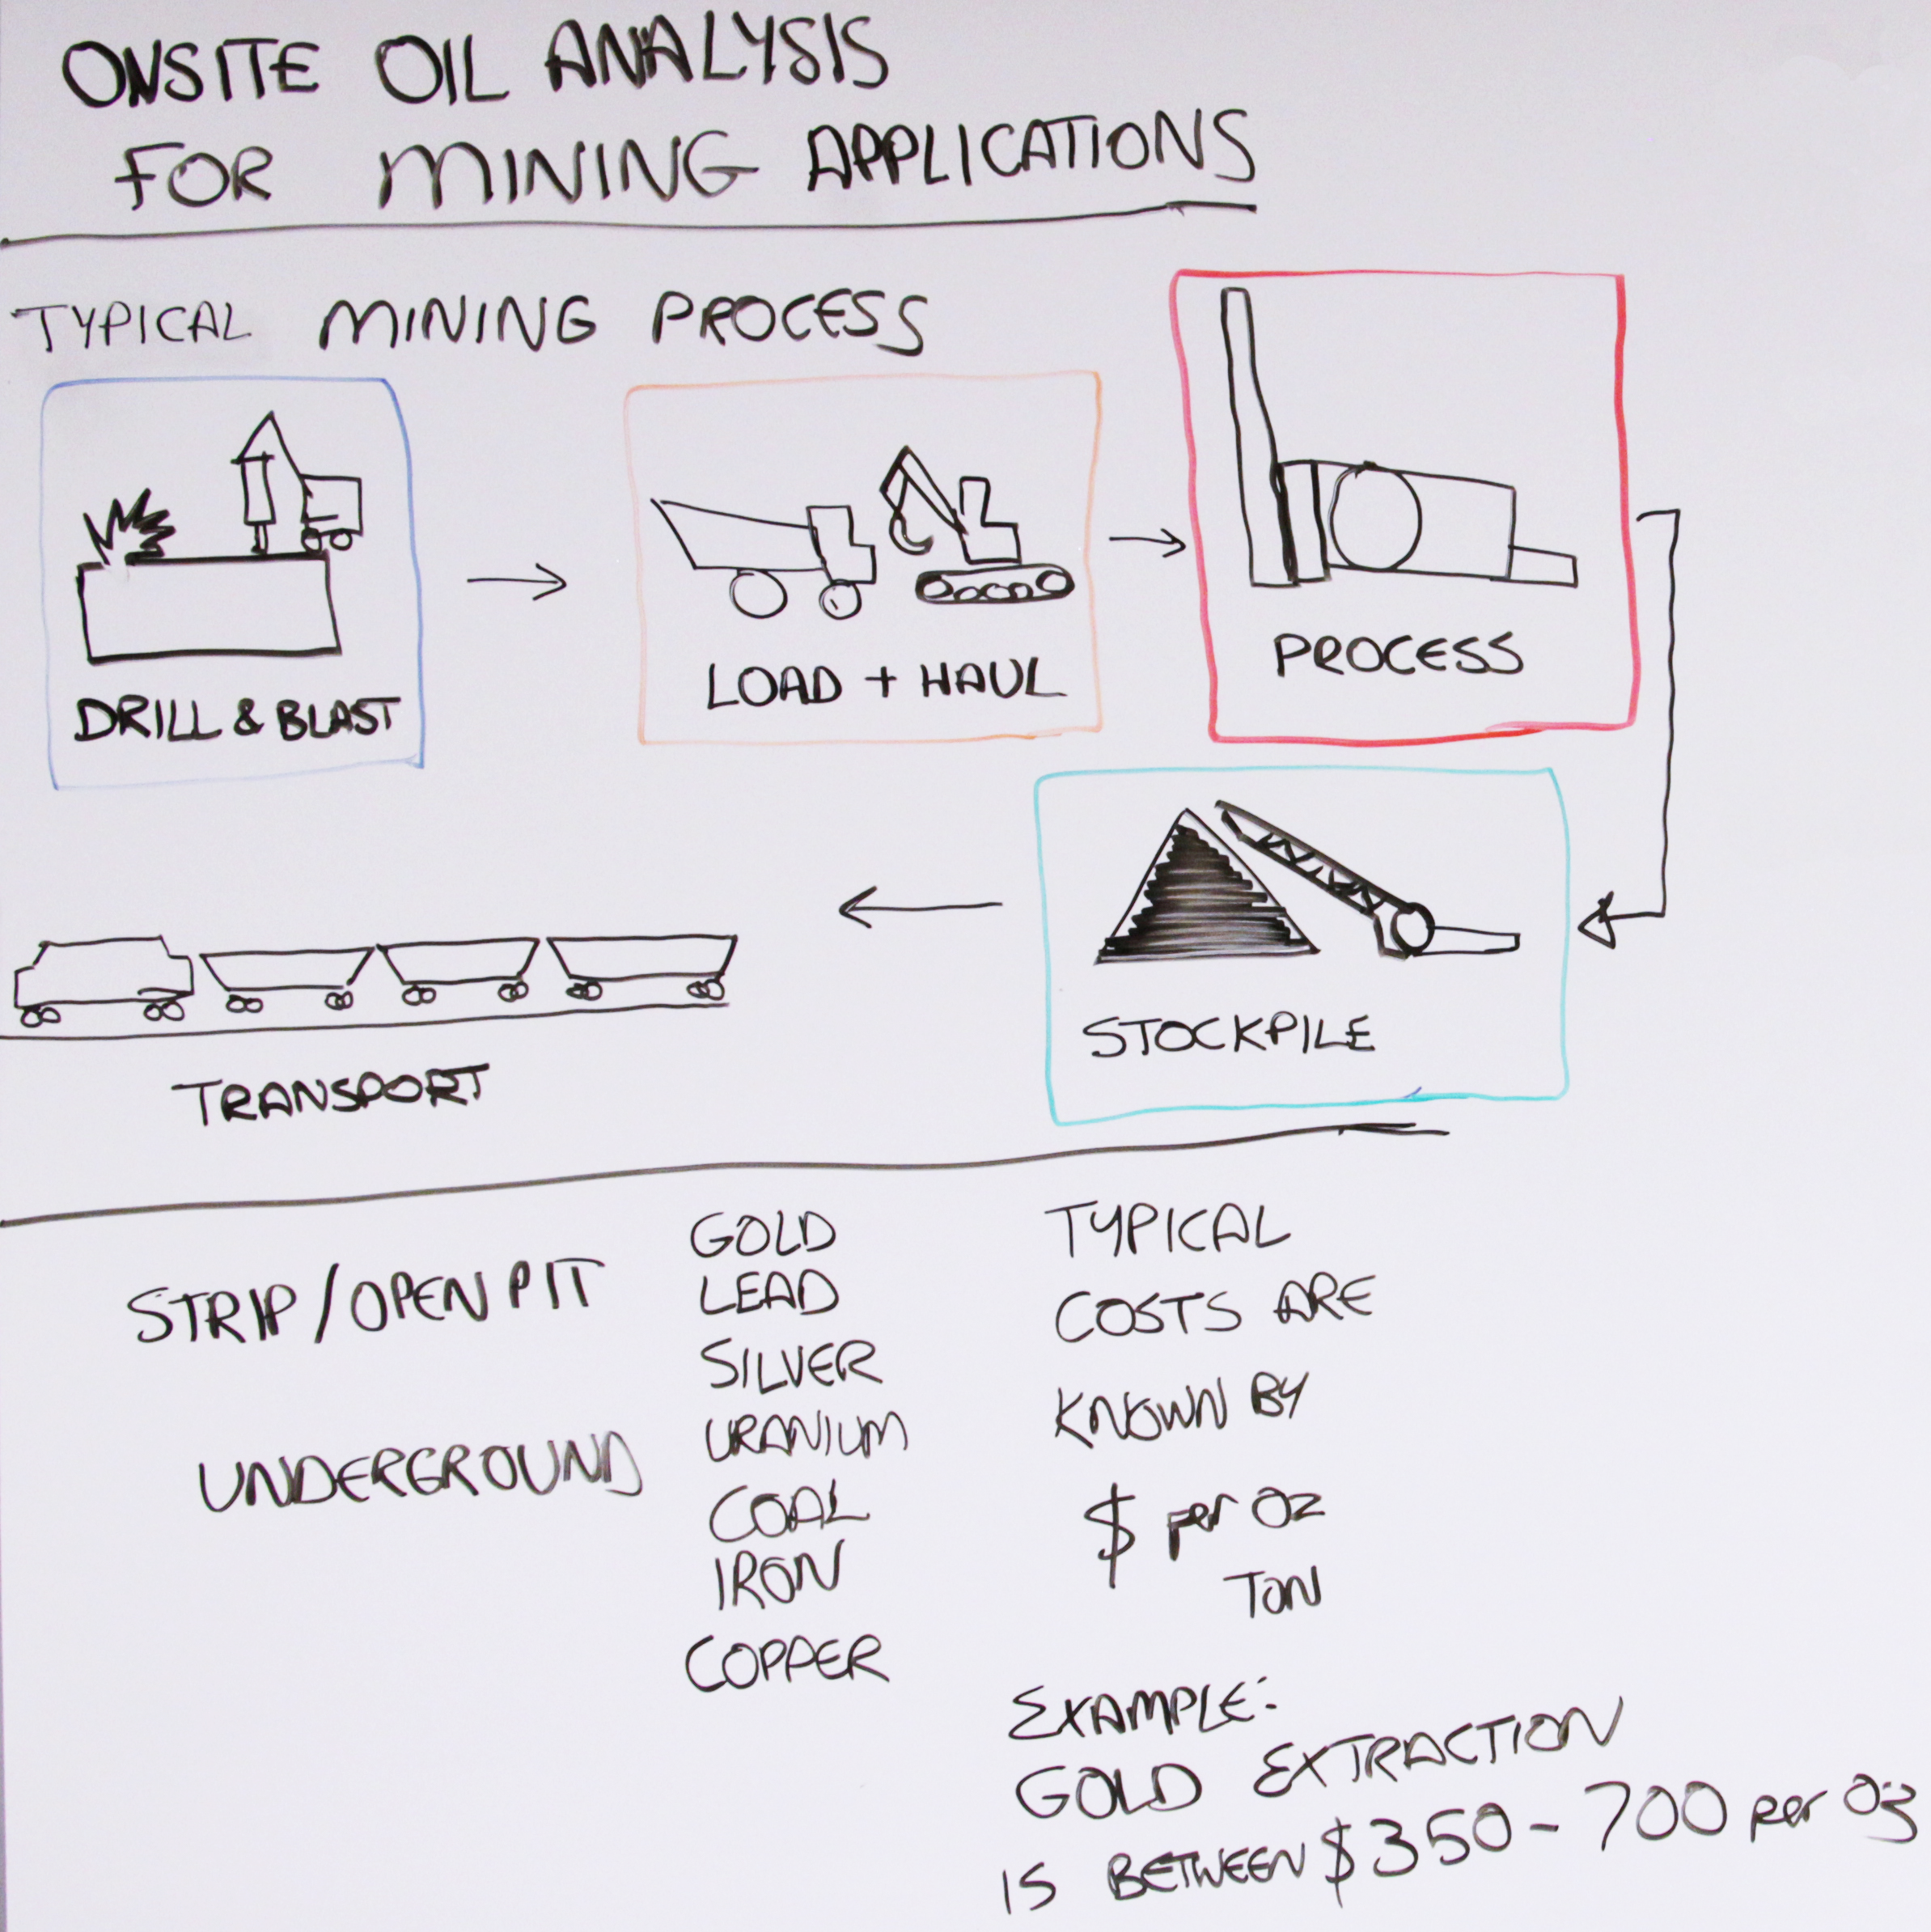 ONSITE OIL ANALYSIS
FOR MINING APPLICATIONS
TYPICAL MINING PROCESS
DRILL & BLAST
LOAD + HAUL
PROCESS
STOCKPILE
TRANSPORT
STRIP/OPEN PIT
UNDERGROUND
GOLD
LEAD
SILVER
URANIUM
COAL
IRON
COPPER
TYPICAL
COSTS ARE
KNOWN BY
$ per Oz
TON
EXAMPLE:
GOLD EXTRACTION
IS BETWEEN $350-700 per Oz